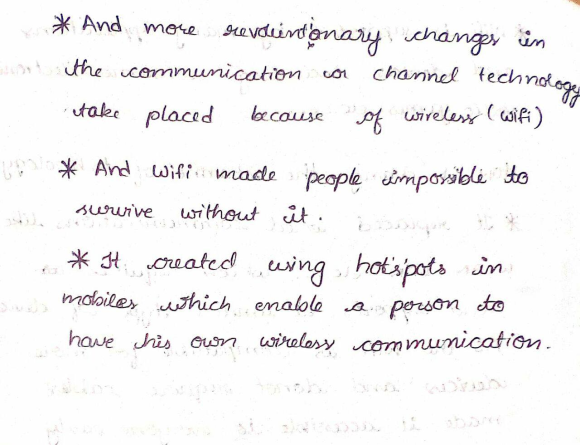 * And more revduntionary changes in
the communication or channel technology
take placed because of wireless (wifi)
* And wifi made people impossible to
survive without it.
* It created using hotspots in
mobiles which enable a person to
have his own wireless communication.